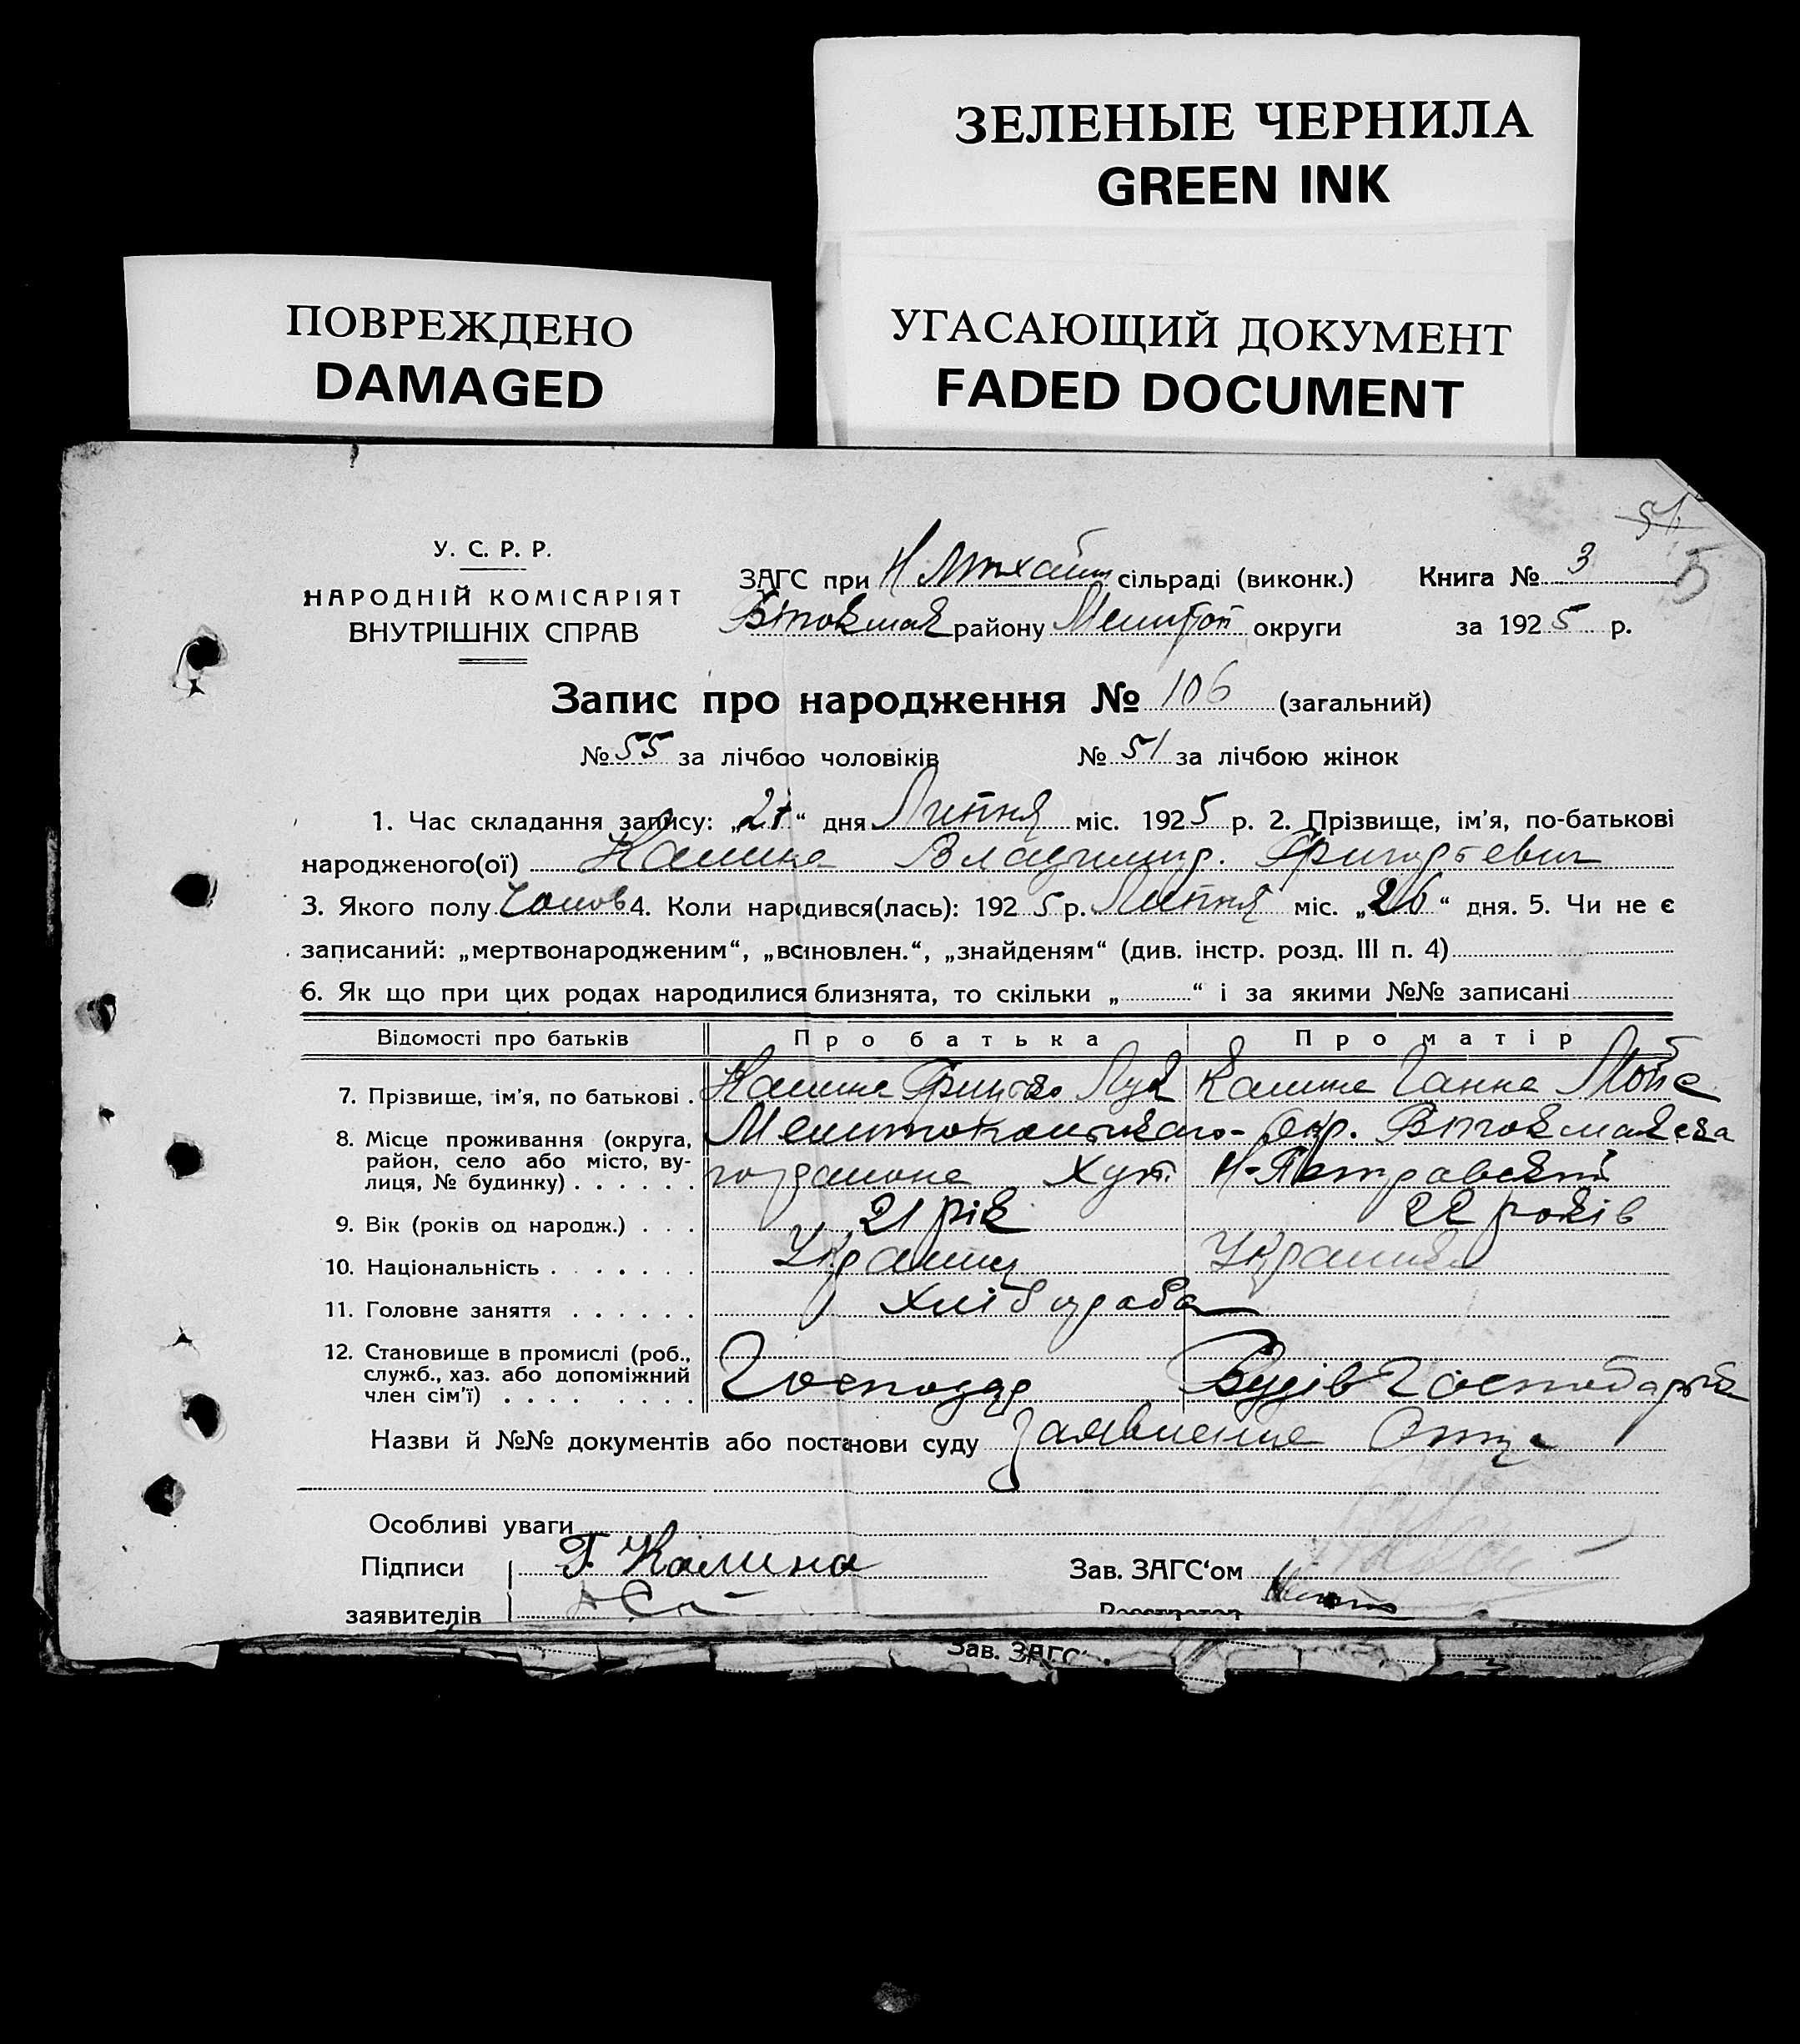 ЗЕЛЕНЫЕ ЧЕРНИЛА
GREEN INK
УГАСАЮЩИЙ ДОКУМЕНТ
FADED DOCUMENT
ПОВРЕЖДЕНО
DAMAGED
51
5
У. С. Р. Р.
НАРОДНІЙ КОМІСАРІЯТ
ВНУТРІШНІХ СПРАВ
ЗАГС при Н Михайл сільраді (виконк.) Книга № 3
Втокмак району Мелитоп округи за 1925 р.
Запис про народження № 106 (загальний)
№ 55 за лічбою чоловіків № 51 за лічбою жінок
1. Час складання запису: „27“ дня Липня міс. 1925 р. 2. Прізвище, ім'я, по-батькові
народженого(ої) Калина Владимир. Григорьевич
3. Якого полу Чолов 4. Коли народився(лась): 1925 р. Липня міс. „26“ дня. 5. Чи не є
записаний: „мертвонародженим“, „всиновлен.“, „знайденям“ (див. інстр. розд. III п. 4)
6. Як що при цих родах народилися близнята, то скільки „ “ і за якими №№ записані
Відомості про батьків Про батька Про матір
7. Прізвище, ім'я, по батькові . Калина Грицько Лук Калина Ганна Мойс
8. Місце проживання (округа, Мелитопольского Окр. Втокмакска
район, село або місто, ву-
лиця, № будинку) . . . . . . го района Хут. Н-Петровский
9. Вік (років од народж.) . . . 21 рік 22 років
10. Національність . . . . . . . Украінц Украінка
11. Головне заняття . . . . . . Хліборобa
12. Становище в промислі (роб.,
служб., хаз. або допоміжний
член сім'ї) . . . . . . . . Господар Господарка
Назви й №№ документів або постанови суду Заявление Отца
Особливі уваги
Підписи Г. Калина Зав. ЗАГС'ом
заявителів Реєстратор
Зав. ЗАГС